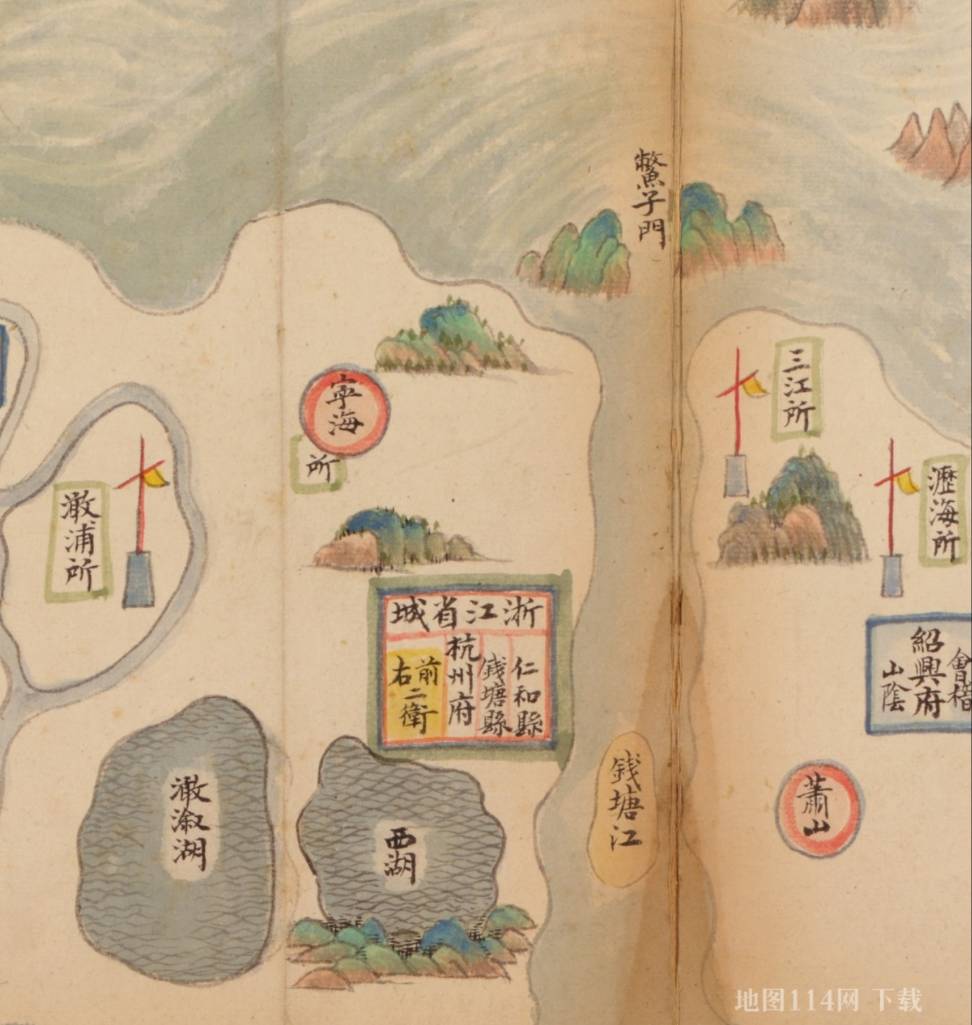 鱉子門
三江所
瀝海所
寧海
所
澉浦所
浙江省城
仁和縣
錢塘縣
杭州府
前右二衛
會稽
紹興府
山陰
錢塘江
蕭山
西湖
澉湖
地图114网 下载